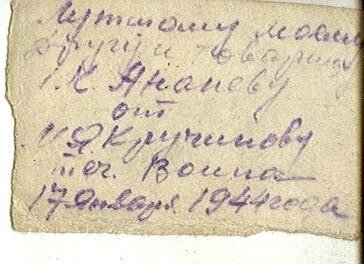 Лутшому моему
другу и товарищу
М. Ананеву
от
И Я Кручинову
т ч. Воина
17 января 1944 года